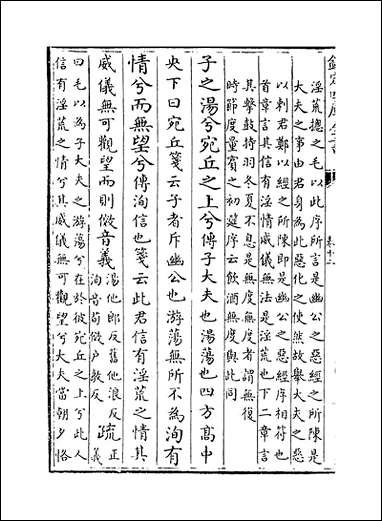 欽定四庫全書
卷十二
淫荒摠之毛以此序所言是幽公之惡經之所陳是
大夫之事由君身為此惡化之使然故舉大夫之惡
以刺君鄭以經之所陳即是幽公之惡經序相符也
首章言其信有淫情威儀無法是淫荒也下二章言
其擊鼓持羽冬夏不息是無度無度者謂無復
時節度量賓之初筵序云飲酒無度與此同
子之湯兮宛丘之上兮傳子大夫也湯蕩也四方高中
央下曰宛丘箋云子者斥幽公也游蕩無所不為洵有
情兮而無望兮傳洵信也箋云此君信有淫荒之情其
威儀無可觀望而則傚音義湯他郎反舊他浪反洵音荀傚戶教反疏正義
曰毛以為子大夫之游蕩兮在於彼宛丘之上兮此人
信有淫荒之情兮其威儀無可觀望兮大夫當朝夕恪